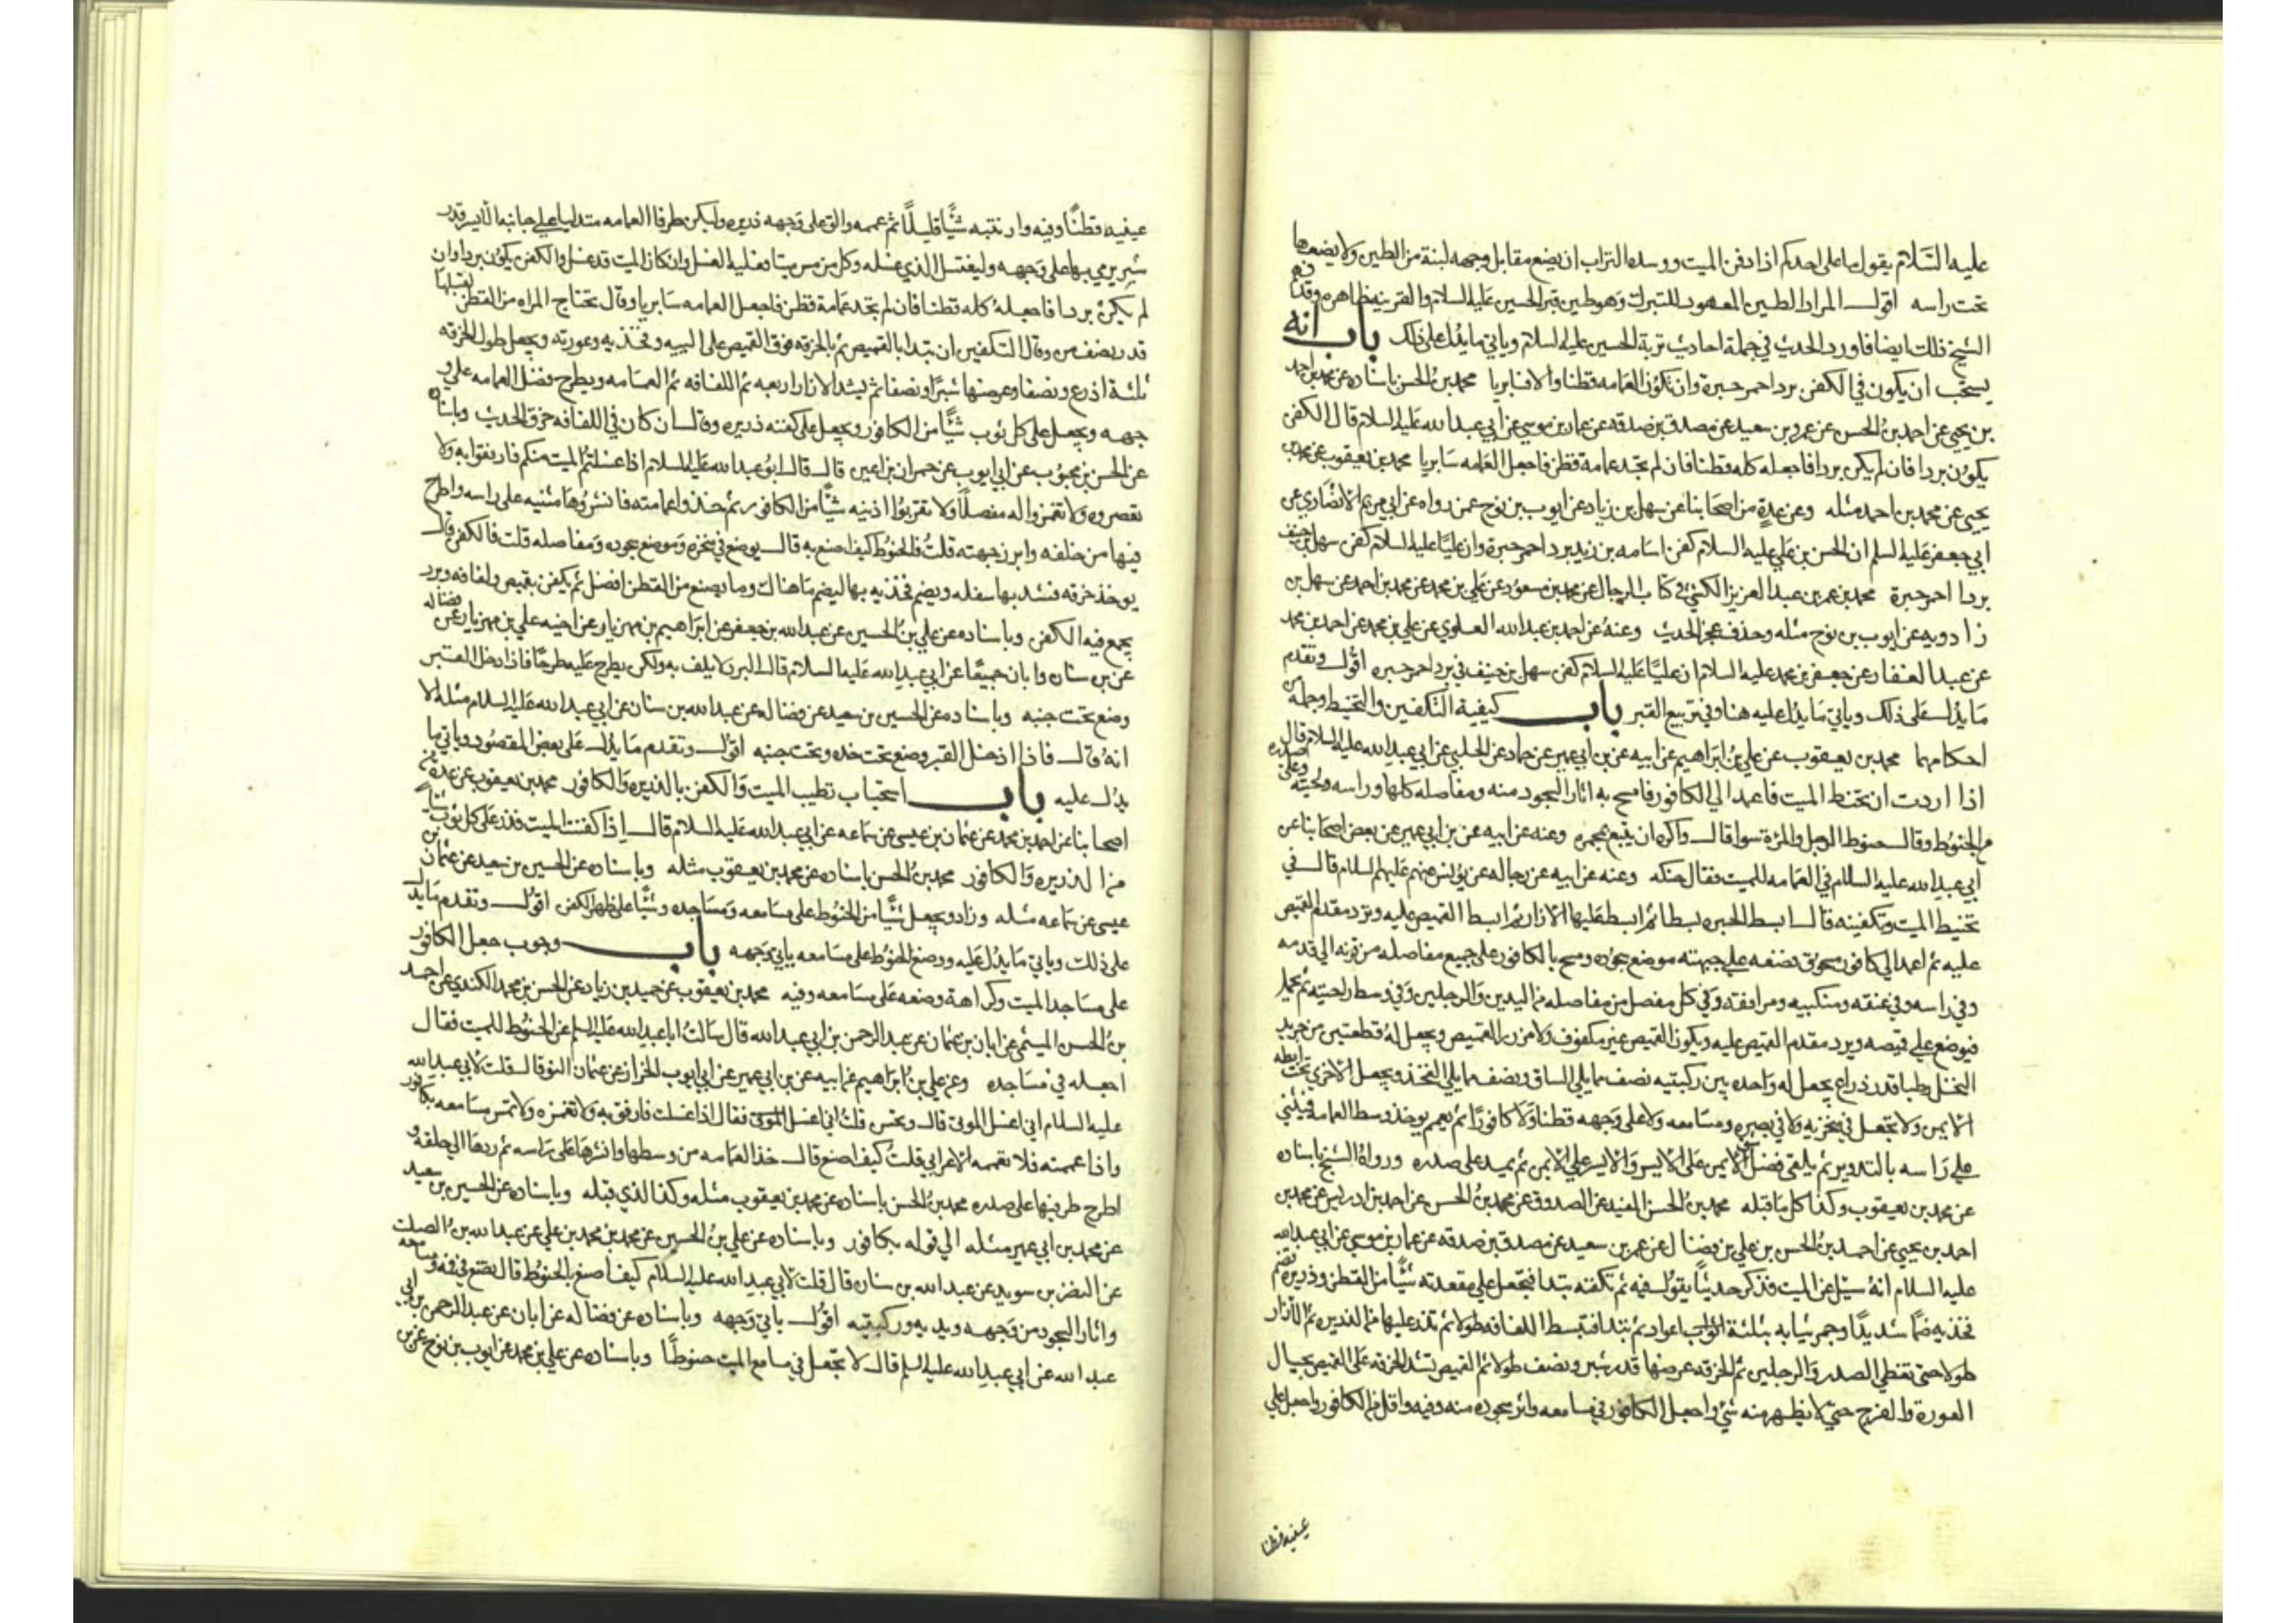 عليه السَّلام يقول ما على احدكم اذا دفن الميت ووسده التراب ان يضع مقابل وجهه لبنة من الطين ولا يضعها
تحت راسه اقول المراد الطين المعهود للتبرك وهو طين قبر الحسين عليه السلام والقرينه ظاهره وقد فهم
الشيخ ذلك ايضا فاورد الحديث في جملة احاديث تربة الحسين عليه السلام وياتي ما يدل على ذلك باب انه
يستحب ان يكون في الكفن برد احمر حبرة وان تكون العمامه قطنا والا فسابريا محمد بن الحسن باسناده عن محمد بن احمد
بن يحيى عن احمد بن الحسن عن عمرو بن سعيد عن مصدق بن صدقه عن عمار بن موسى عن ابي عبد الله عليه السلام قال الكفن
يكون بردا فان لم يكن بردا فاجعله كله قطنا فان لم تجد عمامة قطن فاجعل العمامه سابريا محمد بن يعقوب عن محمد بن
يحيى عن محمد بن احمد مثله وعن عدة من اصحابنا عن سهل بن زياد عن ايوب بن نوح عمن رواه عن ابي مريم الانصاري عن
ابي جعفر عليه السلم ان الحسن بن علي عليه السلام كفن اسامه بن زيد ببرد احمر حبرة وان عليا عليه السلام كفن سهل بن حنيف
بردا احمر حبرة محمد بن عمر بن عبد العزيز الكشي في كتاب الرجال عن محمد بن مسعود عن علي بن محمد عن محمد بن احمد عن سهل بن
زادويه عن ايوب بن نوح مثله وحذف عجز الحديث وعنه عن احمد بن عبد الله العلوي عن علي بن محمد عن احمد بن محمد
عن عبد الغفار عن جعفر بن محمد عليه السلام ان عليًا عليه السلام كفن سهل بن حنيف في برد احمر حبره اقول وتقدم
ما يدل على ذلك وياتي ما يدل عليه هنا وفي تربيع القبر باب كيفية التكفين والتحنيط وجملة من
احكامهما محمد بن يعقوب عن علي بن ابراهيم عن ابيه عن بن ابي عمير عن حماد عن الحلبي عن ابي عبد الله عليه السلام قال
اذا اردت ان تحنط الميت فاعمد الى الكافور فامسح به اثار السجود منه ومفاصله كلها وراسه ولحيته وعلى صدره
من الحنوط وقال حنوط الرجل والمرة سوا قال واكره ان يتبع بمجمره وعنه عن ابيه عن بن ابي عمير عن بعض اصحابنا عن
ابي عبد الله عليه السلام في العمامه للميت فقال حنكه وعنه عن ابيه عن رجاله عن يونس عنهم عليهم السلام قال في
تحنيط الميت وتكفينه قال ابسط الحبره بسطا ثم ابسط عليها الازار ثم ابسط القميص عليه وترد مقدم القميص
عليه ثم اعمد الى كافور مسحوق فضعه على جبهته موضع سجوده وامسح بالكافور على جميع مفاصله من قرنه الى قدمه
وفي راسه وفي عنقه ومنكبيه ومرافقه وفي كل مفصل من مفاصله من اليدين والرجلين وفي وسط راحتيه ثم يحمل
فيوضع على قميصه ويرد مقدم القميص عليه ويكون القميص غير مكفوف ولا مزرر القميص ويجعل له قطعتين من جريد
النخل رطبا قدر ذراع يجعل له واحده بين ركبتيه نصف مما يلي الساق ونصف مما يلي الفخذ ويجعل الاخرى تحت ابطه
الايمن ولا تجعل في منخريه ولا في بصره ومسامعه ولا على وجهه قطنا ولا كافورًا ثم يعمم يوخذ وسط العمامه فيثنى
على راسه بالتدوير ثم يلقى فضل الايمن على الايسر والايسر على الايمن ثم يمد على صدره ورواه الشيخ باسناده
عن محمد بن يعقوب وكذا كل ما قبله محمد بن الحسن المفيد عن الصدوق عن محمد بن الحسن عن احمد بن ادريس عن محمد بن
احمد بن يحيى عن احمد بن الحسن بن علي بن فضال عن عمر بن سعيد عن مصدق بن صدقه عن عمار بن موسى عن ابي عبد الله
عليه السلام انه سئل عن الميت فذكر حديثًا يقول فيه ثم تكفنه تبدا فتجعل على مقعدته شيًا من القطن وذريره تضم
فخذيه ضمًا شديدًا وجمر ثيابه بثلثة اعواد ثم تبدا فتبسط اللفافه طولا ثم تذر عليها من الذريره ثم الازار
طولا حتى تغطي الصدر والرجلين ثم الخرقه عرضها قدر شبر ونصف طولا ثم القميص تشد الخرقه على القميص بحيال
العورة والفرج حتى لا يظهر منه شي واجعل الكافور في مسامعه واثر سجوده منه وفيه واقل من الكافور واجعل على
عينيه قطنا
عينيه قطنًا وفيه وارنبته شيًا قليلًا ثم عممه والق على وجهه ذريره وليكن طرفا العمامه متدليا على جانبه الايسر قدر
شبر يرمي بها على وجهه وليغتسل الذي غسله وكل من مس ميتا فعليه الغسل وان كان الميت قد غسل والكفن يكون بردا وان
لم يكن بردا فاجعله كله قطنا فان لم تجد عمامة قطن فاجعل العمامه سابريا وقال تحتاج المراه من القطن لقبلها
قدر نصف من وقال التكفين ان تبدا بالقميص ثم بالخرقه فوق القميص على الييه وفخذيه وعورته ويجعل طول الخرقه
ثلثة اذرع ونصفا وعرضها شبرًا ونصفا ثم يشد الازار اربعه ثم اللفافه ثم العمامه ويطرح فضل العمامه على و
جهه ويجعل على كل ثوب شيًا من الكافور ويجعل على كفنه ذريره وقال ان كان في اللفافه خرق الحديث وباسناده
عن الحسن بن محبوب عن ابي ايوب عن حمران بن اعين قال قال ابو عبد الله عليه السلام اذا غسلتم الميت منكم فارفقوا به ولا
تعصروه ولا تغمزوا له مفصلًا ولا تقربوا اذنيه شيًا من الكافور ثم خذوا عمامته فانشروها مثنيه على راسه واطرح
فيها من خلفه وابرز جبهته قلت فالحنوط كيف اصنع به قال يوضع في منخره وموضع سجوده ومفاصله قلت فالكفن قال
يوخذ خرقه فتشد بها سفله ويضم فخذيه بها ليضم ما هناك وما يصنع من القطن افضل ثم يكفن بقميص ولفافه وبرد
يجمع فيه الكفن وباسناده عن علي بن الحسين عن عبد الله بن جعفر عن ابراهيم بن مهزيار عن اخيه علي بن مهزيار عن فضاله
عن بن سنان وابان جميعًا عن ابي عبد الله عليه السلام قال البرد لا يلف به ولكن يطرح عليه طرحًا فاذا ادخل القبر
وضع تحت جنبه وباسناده عن الحسين بن سعيد عن فضاله عن عبد الله بن سنان عن ابي عبد الله عليه السلام مثله الا
انه قال فاذا ادخل القبر وضع تحت خده وتحت جنبه اقول وتقدم ما يدل على بعض المقصود وياتي ما
يدل عليه باب استحباب تطيب الميت والكفن بالذريره والكافور محمد بن يعقوب عن عدة من
اصحابنا عن احمد بن محمد عن عثمان بن عيسى عن سماعه عن ابي عبد الله عليه السلام قال اذا كفنت الميت فذر على كل ثوب شيًا
من الذريره والكافور محمد بن الحسن باسناده عن محمد بن يعقوب مثله وباسناده عن الحسين بن سعيد عن عثمان بن
عيسى عن سماعه مثله وزاد ويجعل شيًا من الحنوط على مسامعه ومساجده وشيًا على ظهر الكفن اقول وتقدم ما يدل
على ذلك وياتي ما يدل عليه ووضع الحنوط على مسامعه ياتي وجهه باب وجوب جعل الكافور
على مساجد الميت وكراهة وضعه على مسامعه وفيه محمد بن يعقوب عن حميد بن زياد عن الحسن بن محمد الكندي عن احمد
بن الحسن الميثمي عن ابان بن عثمان عن عبد الرحمن بن ابي عبد الله قال سالت ابا عبد الله عليه السلم عن الحنوط للميت فقال
اجعله في مساجده وعن علي بن ابراهيم عن ابيه عن بن ابي عمير عن ابي ايوب الخزاز عن عثمان النوا قال قلت لابي عبد الله
عليه السلام اني اغسل الموتى قال وتحسن قلت اني اغسل الموتى فقال اذا غسلت فارفق به ولا تغمزه ولا تمس مسامعه بكافور
واذا عممته فلا تعممه الاعرابي قلت كيف اصنع قال خذ العمامه من وسطها وانشرها على راسه ثم ردها الى خلفه و
اطرح طرفيها على صدره محمد بن الحسن باسناده عن محمد بن يعقوب مثله وكذا الذي قبله وباسناده عن الحسين بن سعيد
عن محمد بن ابي عمير مثله الى قوله بكافور وباسناده عن علي بن الحسين عن محمد بن محمد بن علي عن عبد الله بن الصلت
عن النضر بن سويد عن عبد الله بن سنان قال قلت لابي عبد الله عليه السلام كيف اصنع بالحنوط قال تضع في فمه ومسامعه
واثار السجود من وجهه ويديه وركبتيه اقول ياتي وجهه وباسناده عن فضاله عن ابان عن عبد الرحمن بن ابي
عبد الله عن ابي عبد الله عليه السلم قال لا تجعل في مسامع الميت حنوطًا وباسناده عن علي بن محمد عن ايوب بن نوح عن بن